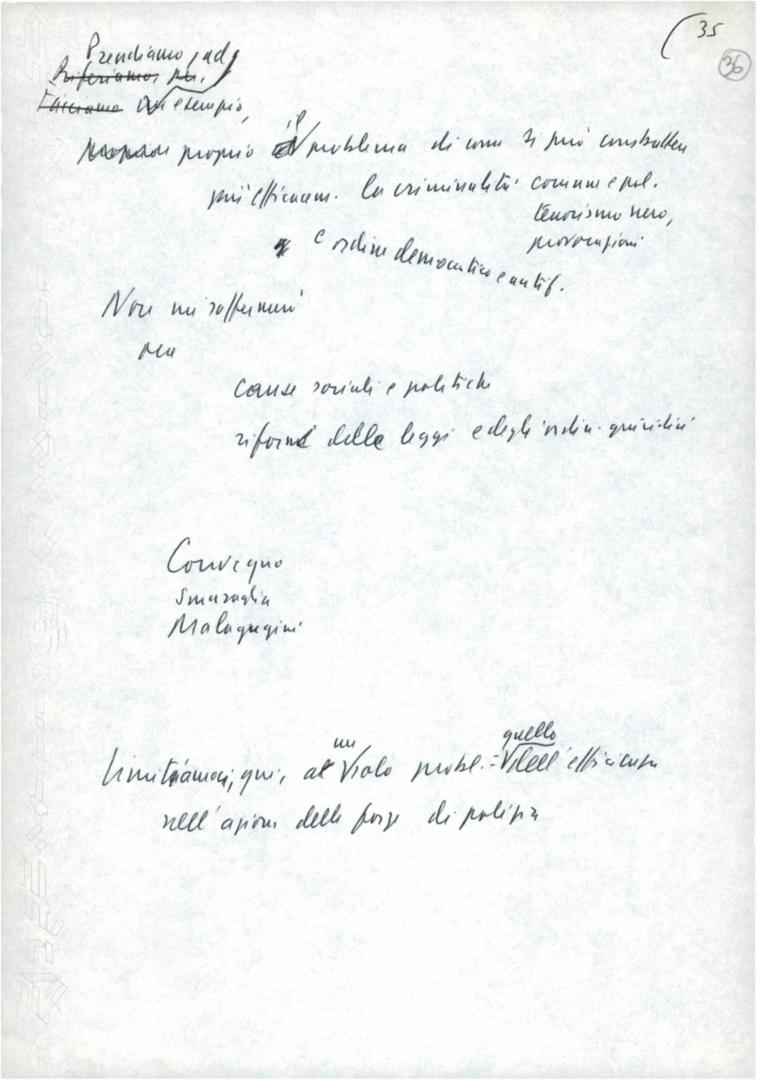 35
36
Prendiamo, ad
Riferiamoci per
Facciamo un esempio,
proprio il problema di come si può combattere
più efficacem. la criminalità comune e pol.
terrorismo nero,
provocazioni
e ordine democratico e antif.
Non mi soffermerò
ora
cause sociali e politiche
riforme delle leggi e degli ordin. giuridici
Convegno
Smuraglia
Malagugini
un quello
Limitiamoci, qui, al solo probl.: dell'efficienza
nell'azione delle forze di polizia